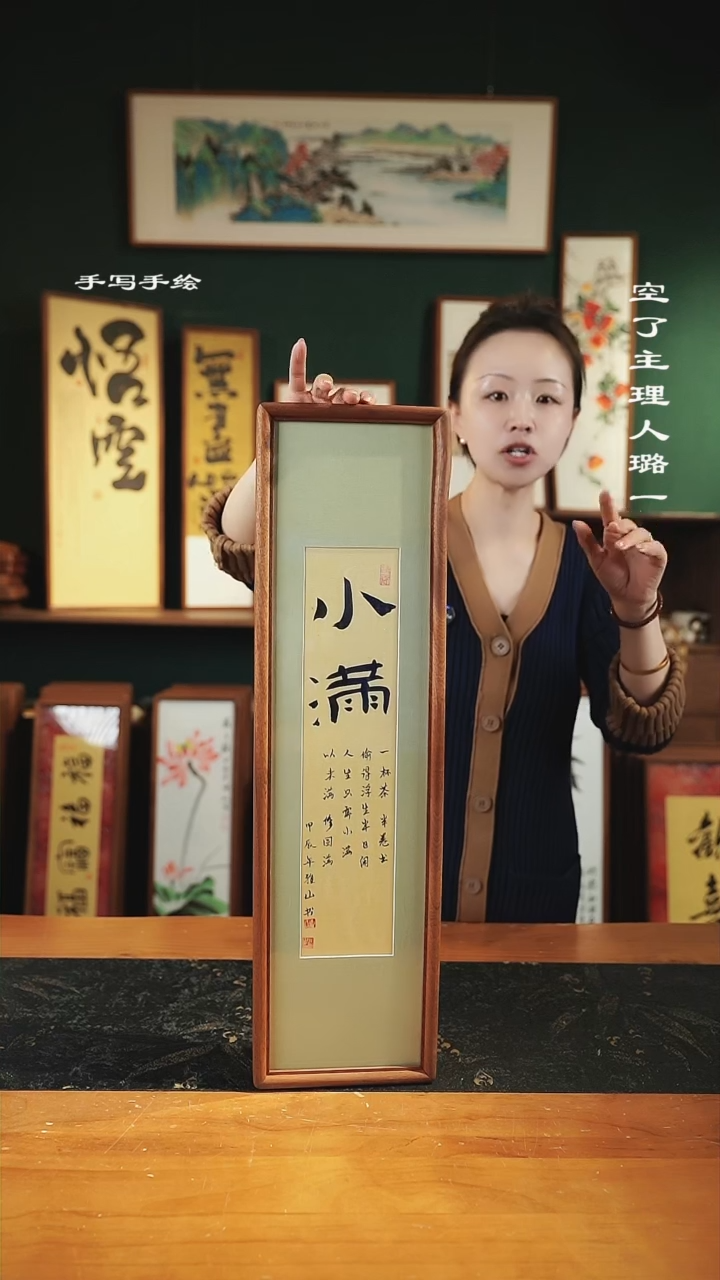 手写手绘
空了主理人璐一
悟空
小满
一杯茶 半卷书
偷得浮生半日闲
人生只需小满
以未满 修圆满
甲辰年雅山书
福
福
福
福
歡喜